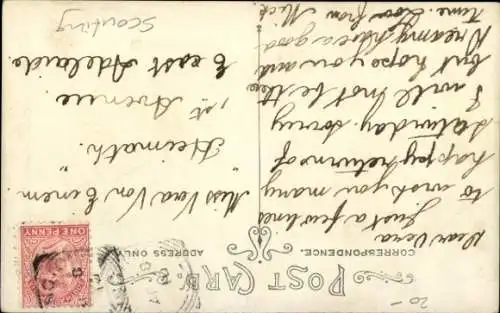 POST CARD.
CORRESPONDENCE.
ADDRESS ONLY
Dear Vera
Just a few lines
to wish you many
happy returns of
Saturday. Sorry
I will not be there
but hope you and
Dreamy have a good
time. Love from Mick
Miss Vera Von Einem
"Heimath"
1st Avenue
East Adelaide
Scouting
ONE PENNY
20-